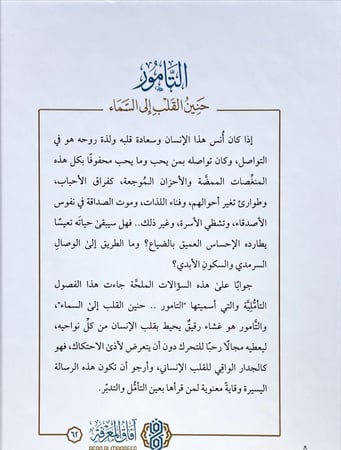 التَّامُورُ
حَنِينُ القَلْبِ إِلَى السَّمَاءِ
إذا كان أُنس هذا الإنسان وسعادة قلبه ولذة روحه هو في
التواصل، وكان تواصله بمن يحب وما يحب محفوفًا بكل هذه
المنغِّصات الممضَّة والأحزان المُوجعة، كفراق الأحباب،
وطوارئ تغير أحوالهم، وفناء اللذات، وموت الصداقة في نفوس
الأصدقاء، وتشظي الأسرة، وغير ذلك.. فهل سيبقىٰ حياتَه تعيسًا
يطارده الإحساس العميق بالضياع؟ وما الطريق إلىٰ الوصالِ
السرمدي والسكونِ الأبدي؟
جوابًا علىٰ هذه السؤالات الملحَّة جاءت هذا الفصول
التأمُّليَّة والتي أسميتها "التامور .. حنين القلب إلى السماء"،
والتَّامور هو غشاء رقيقٌ يحيط بقلب الإنسان من كلِّ نواحيه،
ليعطيه مجالًا رحبًا للتحرك دون أن يتعرض لأذىٰ الاحتكاك، فهو
كالجدار الواقي للقلب الإنساني، وأرجو أن تكون هذه الرسالة
اليسيرة وقايةً معنوية لمن قرأها بعين التأمُّل والتدبّر.
آفَاقُ المَعْرِفَةِ
AFAQ ALMAAREFA
٦٢
٨